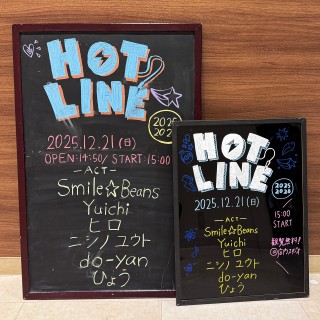 HOT
LINE
2025
2026
2025.12.21(日)
OPEN:14:50/START:15:00
—ACT—
Smile☆Beans
Yuichi
ヒロ
ニシノユウト
do-yan
ひょう
HOT
LINE
2025
2026
2025.12.21(日)
15:00
START
観覧無料!
—ACT—
Smile☆Beans
Yuichi
ヒロ
ニシノユウト
do-yan
ひょう